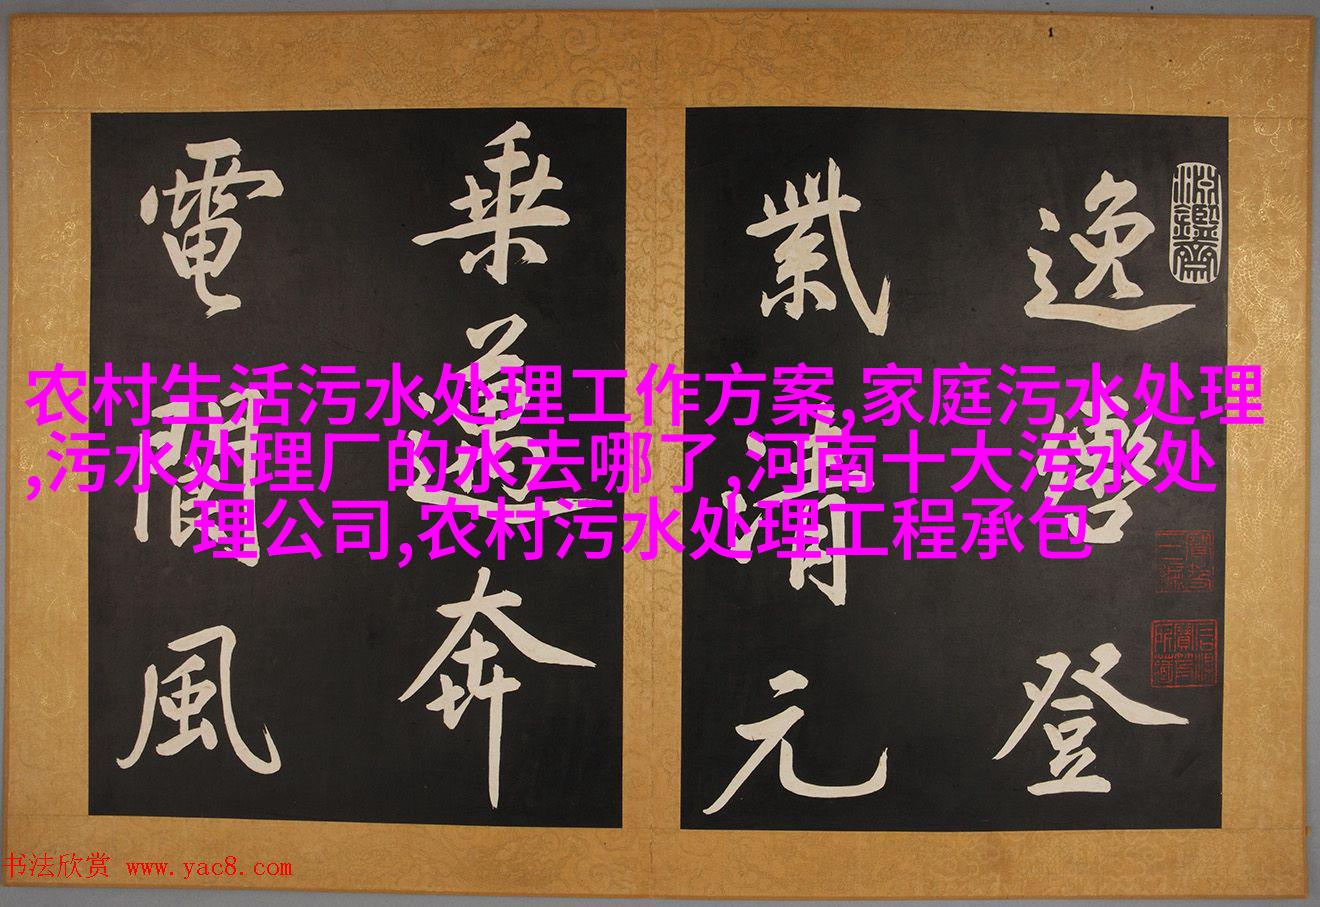 逸轡登
紫清元
乗邁奔
電閬風
农村生活污水处理工作方案,家庭污水处理
,污水处理厂的水去哪了,河南十大污水处
理公司,农村污水处理工程承包
书法欣赏 www.yac8.com